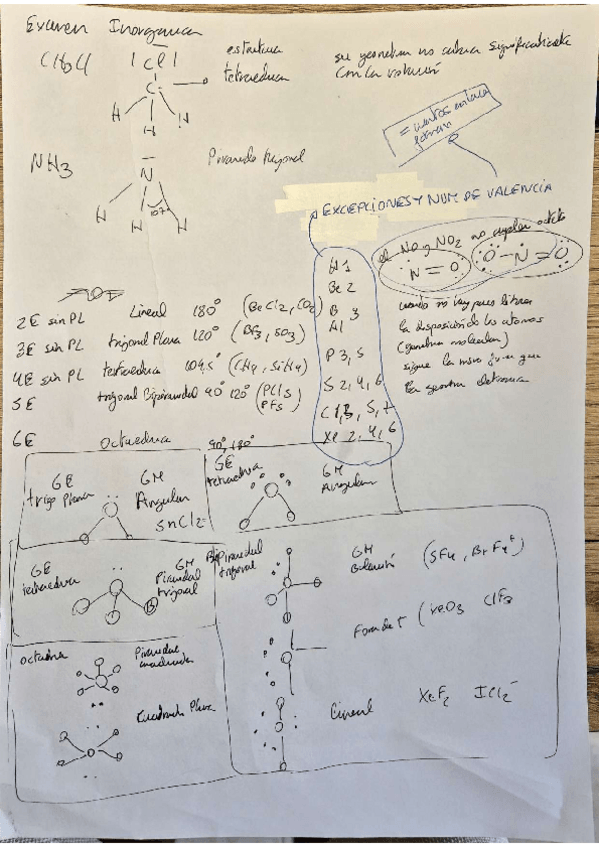 Examen Inorganica
CH3Cl
|Cl|
estructura
tetraedrica
su geometria no cambia significativamente
con la
C
H H H
= electrones
NH3
Piramide trigonal
N
H H H
107
EXCEPCIONES Y NUM DE VALENCIA
el NO y NO2 no cumplen octeto
N=O
O-N=O
H 1
Be 2
B 3
Al
P 3, 5
S 2, 4, 6
Cl 1, 3, 5, 7
Xe 2, 4, 6
cuando no hay pares libres
la disposición de los atomos
(geometria molecular)
sigue la misma que
la geometria electronica
2E sin PL Lineal 180° (BeCl2, CO2)
3E sin PL trigonal Plana 120° (BF3, SO3)
4E sin PL tetraedrica 109,5° (CH4, SiH4)
5E trigonal Bipiramidal 90° 120° (PCl5
PF5)
6E octaedrica 90°, 180°
GE
trigo Plana
GM
Angular
SnCl2
GE
tetraedrica
GM
Angular
GE
tetraedrica
GM
Piramidal
trigonal
Bipiramidal
trigonal
GM
Balancín (SF4, BrF4+)
Forma de T (XeO3 ClF3
Lineal XeF2 ICl2-
octaedrica
Piramidal
cuadrada
Cuadrada Plana